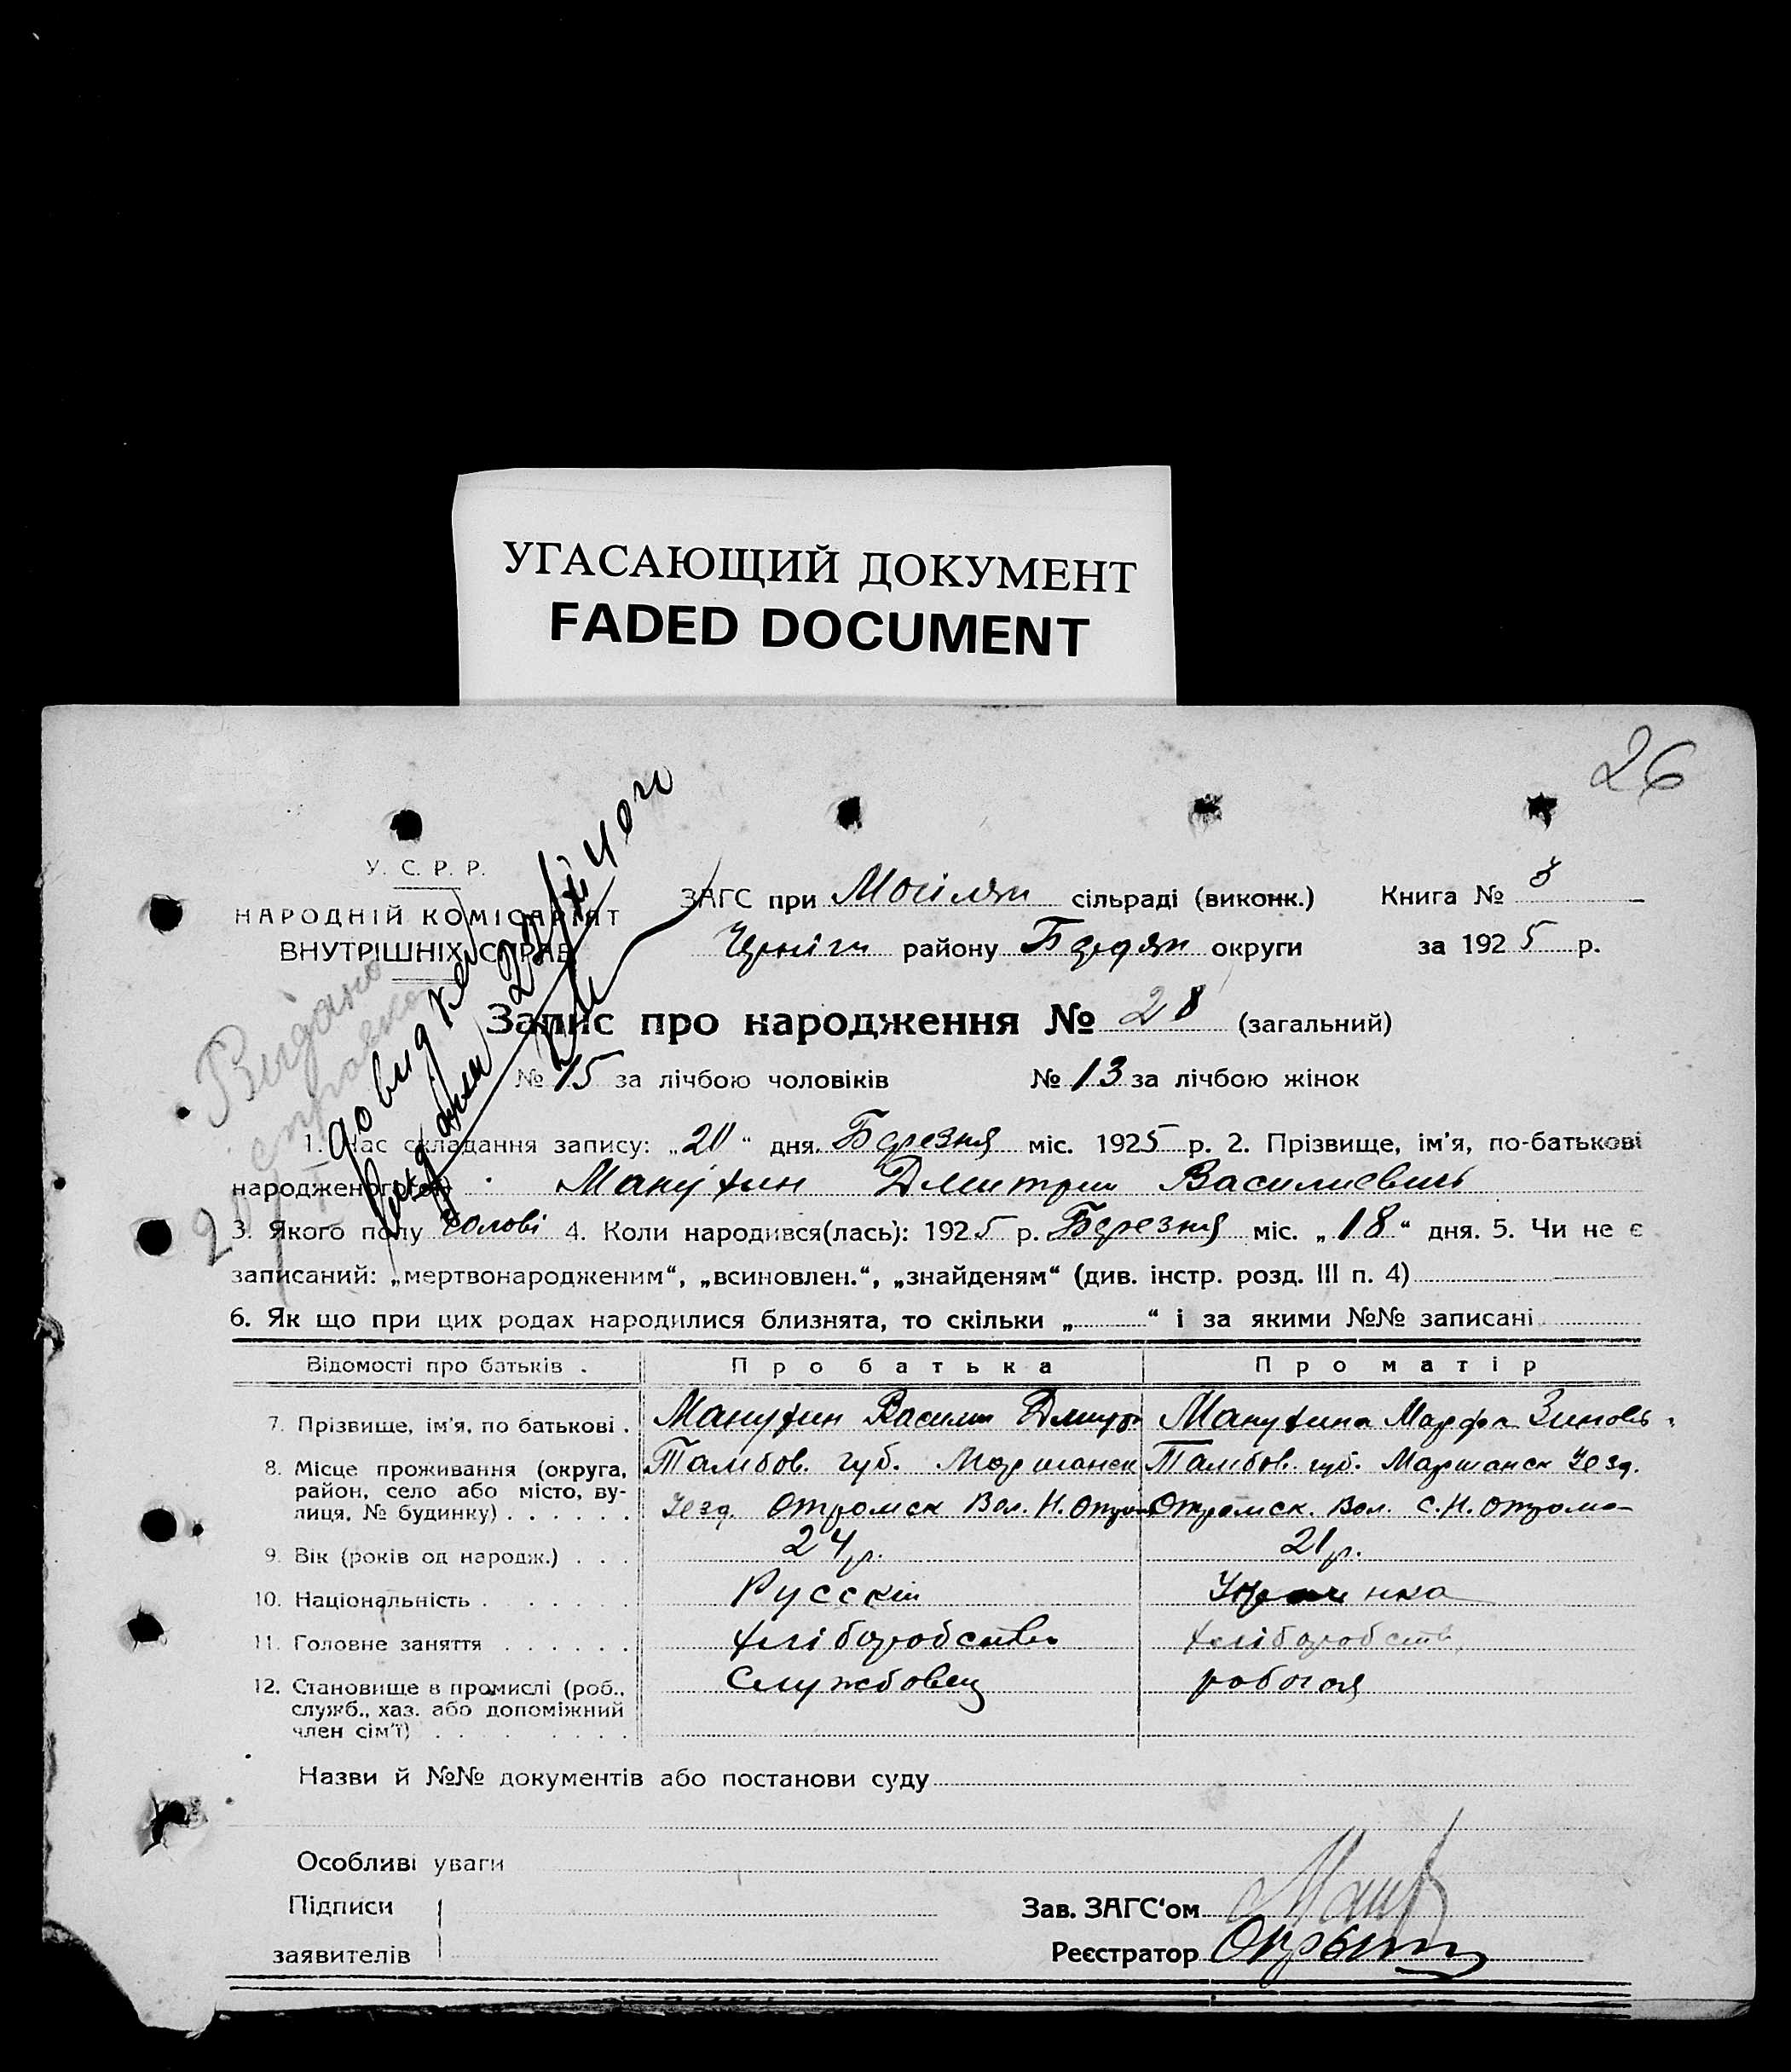 УГАСАЮЩИЙ ДОКУМЕНТ
FADED DOCUMENT
26
У. С. Р. Р.
НАРОДНІЙ КОМІСАРІЯТ
ВНУТРІШНІХ СПРАВ
ЗАГС при Могілян сільраді (виконк.) Книга №
Черніги району Бердян округи за 1925 р.
Видано
справка
Запис про народження № 28 (загальний)
№ 15 за лічбою чоловіків № 13 за лічбою жінок
1. Час складання запису: „20“ дня Березня міс. 1925 р. 2. Прізвище, ім'я, по-батькові
народженого(ої) Манухин Дмитрий Василиевич
3. Якого полу чолові 4. Коли народився(лась): 1925 р. Березня міс. „18“ дня. 5. Чи не є
записаний: „мертвонародженим“, „всиновлен.“, „знайденям“ (див. інстр. розд. III п. 4)
6. Як що при цих родах народилися близнята, то скільки „ “ і за якими №№ записані
Відомості про батьків . Про батька Про матір
7. Прізвище, ім'я, по батькові . Манухин Василий Дмитр Манухина Марфа Зиновь
8. Місце проживання (округа, район, село або місто, вулиця, № будинку) Тамбов. губ. Моршанск Тамбов. губ. Маршанск Уезд.
Уезд. Отромск Вол. Н. Отром Отромск. Вол. С. Н. Отрома
9. Вік (років од народж.) . . . 24 р. 21 р.
10. Національність . Русскій
11. Головне заняття . . . . . . хліборобство хлібороб ств.
12. Становище в промислі (роб., служб., хаз. або допоміжний член сім'ї) Службовец робочая
Назви й №№ документів або постанови суду
Особливі уваги
Підписи
заявителів
Зав. ЗАГС'ом
Реєстратор